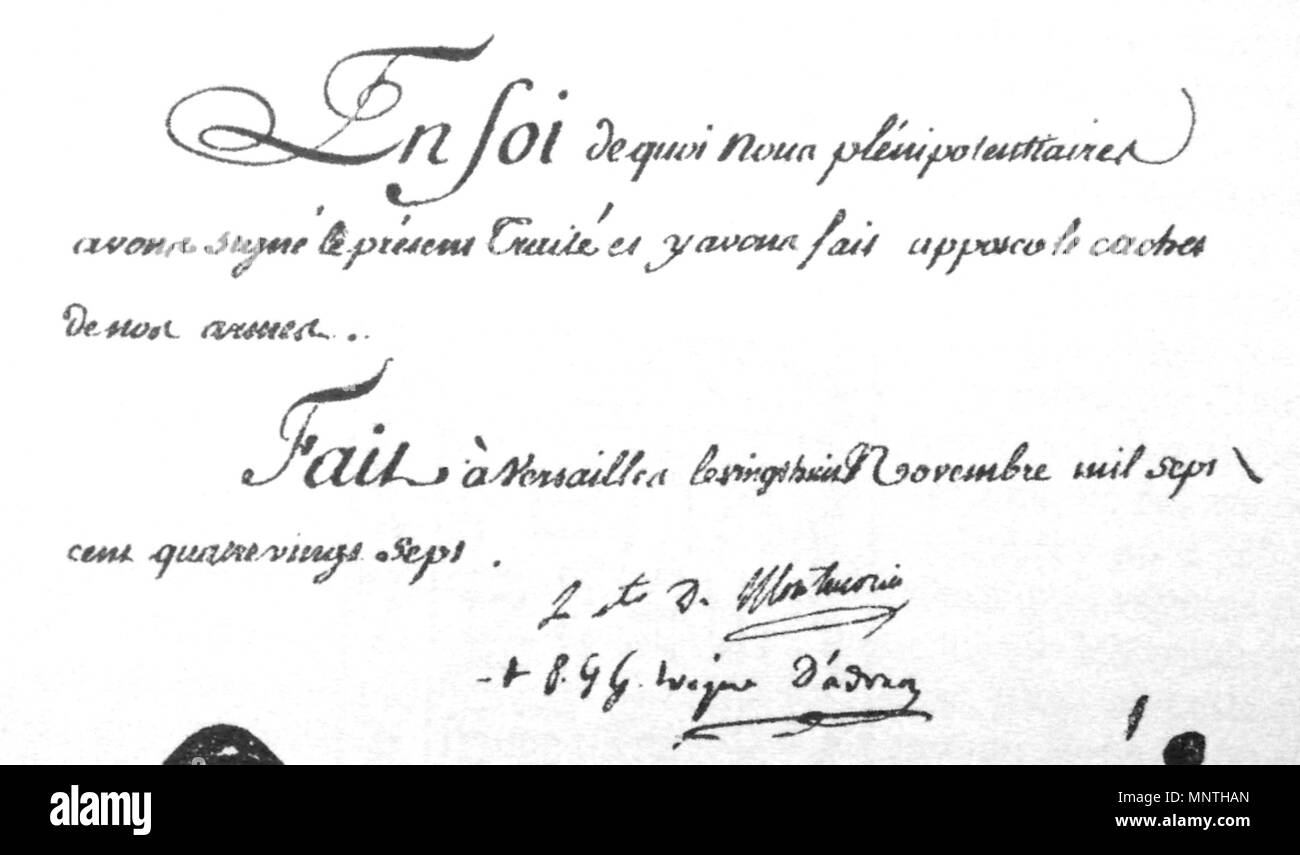 En foi de quoi nous plénipotentiaires
avons signé le présent Traité et y avons fait apposer le cachet
de nos armes.
Fait à Versailles le vingt huit Novembre mil sept
cent quatre vingt sept.
L cte De Montmorin
+ P. G G. évêque D'adran
a
alamy
Image ID: MNTHAN
www.alamy.com